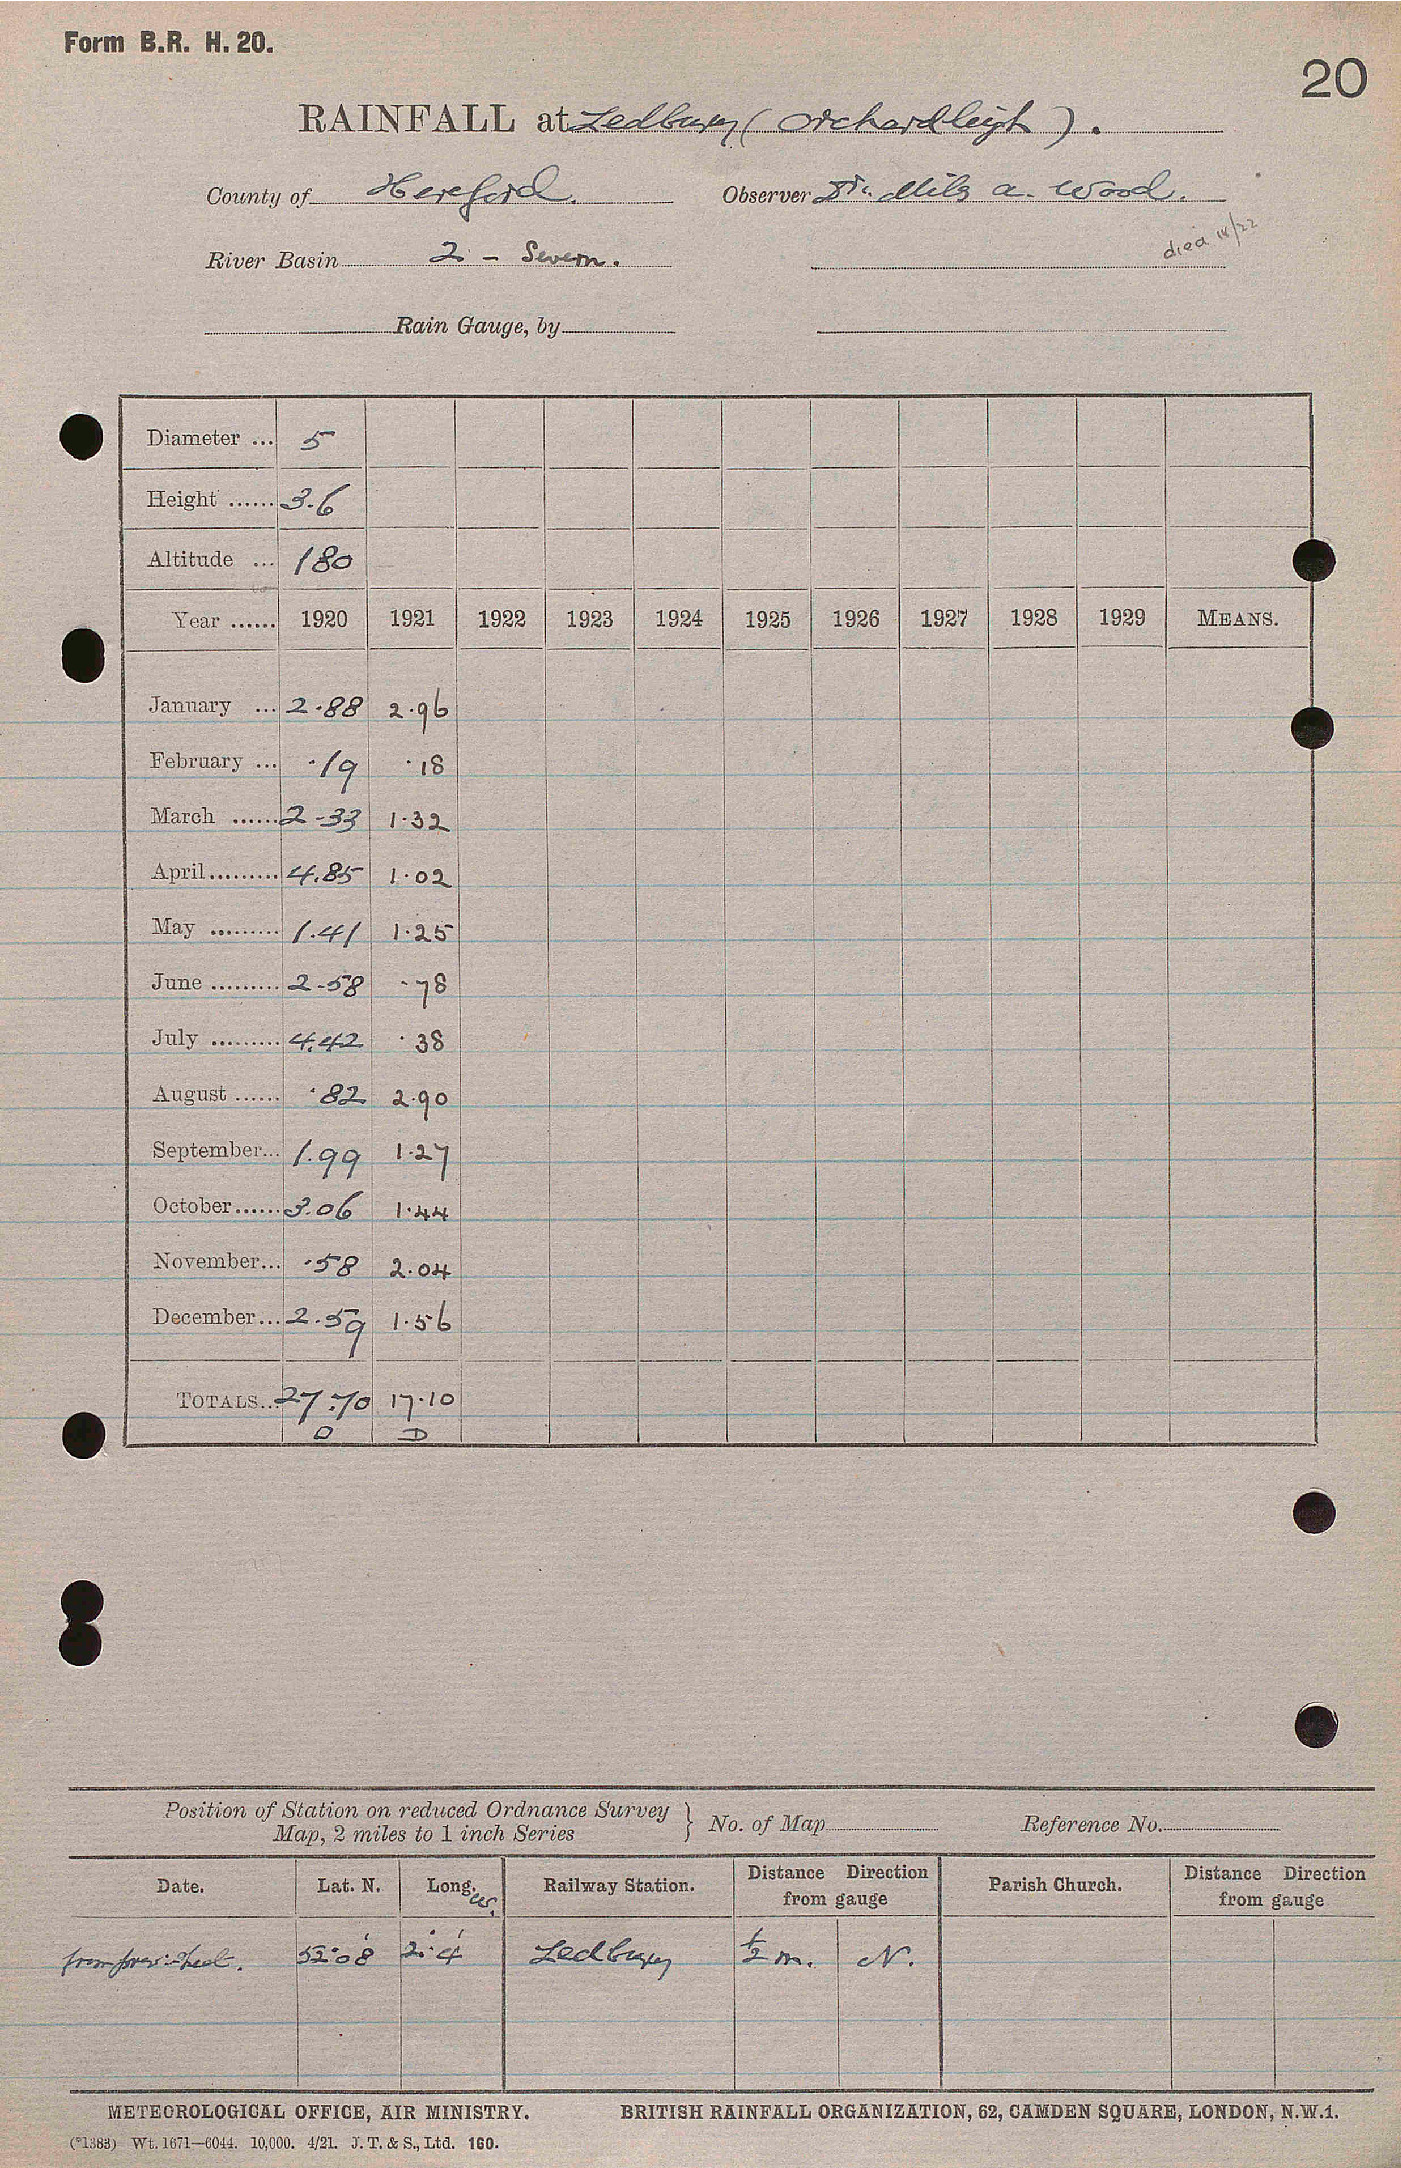 Form B.R. H. 20.
20
RAINFALL at Ledbury (Orchardleigh).
County of Hereford. Observer Dr. Mils A. Wood.
died 14/22
River Basin 2 - Severn.
Rain Gauge, by
Diameter ... 5
Height ...... 3.6
Altitude ... 180
Year ...... 1920 1921 1922 1923 1924 1925 1926 1927 1928 1929 MEANS.
January ... 2.88 2.96
February ... .19 .18
March ...... 2-33 1.32
April......... 4.85 1.02
May ......... 1.41 1.25
June ......... 2-58 .78
July ......... 4.42 .38
August ...... .82 2.90
September... 1.99 1.27
October...... 3.06 1.44
November... .58 2.04
December... 2.59 1.56
TOTALS... 27.70 17.10
D D
Position of Station on reduced Ordnance Survey Map, 2 miles to 1 inch Series } No. of Map Reference No.
Date. Lat. N. Long. W. Railway Station. Distance Direction from gauge Parish Church. Distance Direction from gauge
from prev: sheet. 52°08' 2°.4' Ledbury ½ m. N.
METEOROLOGICAL OFFICE, AIR MINISTRY. BRITISH RAINFALL ORGANIZATION, 62, CAMDEN SQUARE, LONDON, N.W.1.
(*1383) Wt. 1671—6044. 10,000. 4/21. J. T. & S., Ltd. 160.